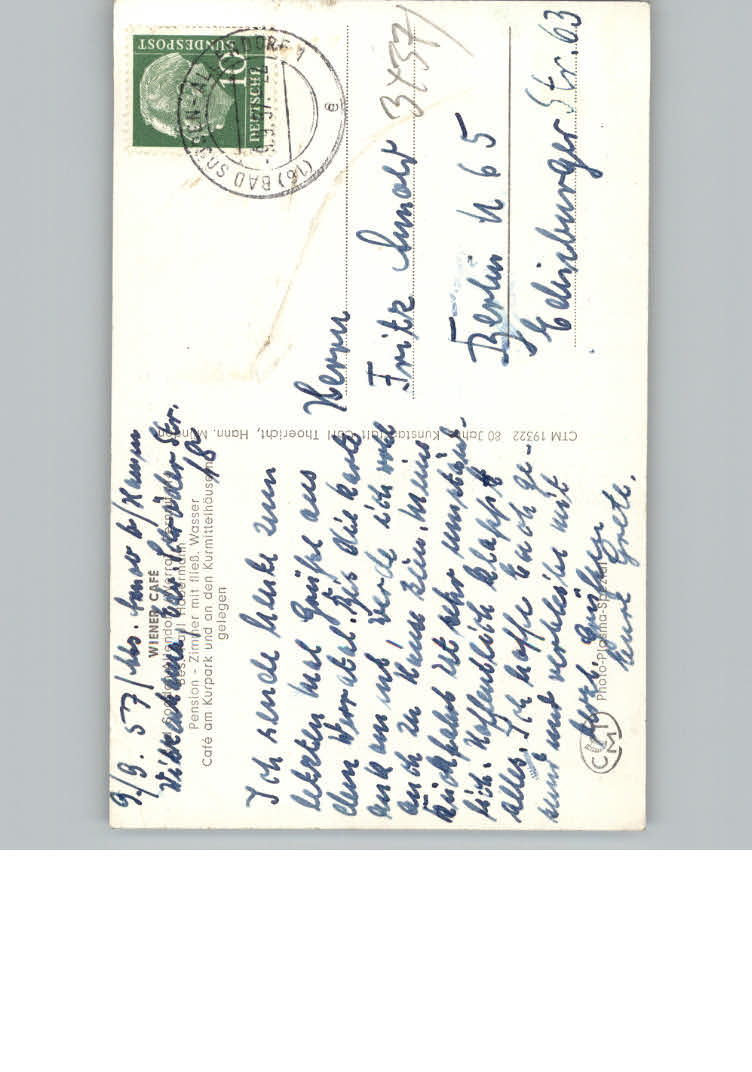 9./9. 57
WIENER CAFÉ
Pension - Zimmer mit fließ. Wasser
Café am Kurpark und an den Kurmittelhäusern
gelegen
Ich sende heute zum
letzten Mal Grüße aus
dem Werratal. Bis die Karte
ankommt werde ich wohl
auch zu Hause sein. Meine
Rückfahrt ist sehr umständ-
lich. Hoffentlich klappt
alles. Ich hoffe Euch ge-
sund und verbleibe mit
herzl. Grüßen
Eure Grete.
CMT
Photo-Plasma-Spezial
CTM 19322 80 Jahre Kunstanstalt Carl Thoericht, Hann. Münden
DEUTSCHE
BUNDESPOST
10
(16) BAD SOODEN-ALLENDORF 1
e
3437
Herrn
Fritz Arnold
Berlin N 65
Edinburger Str. 63